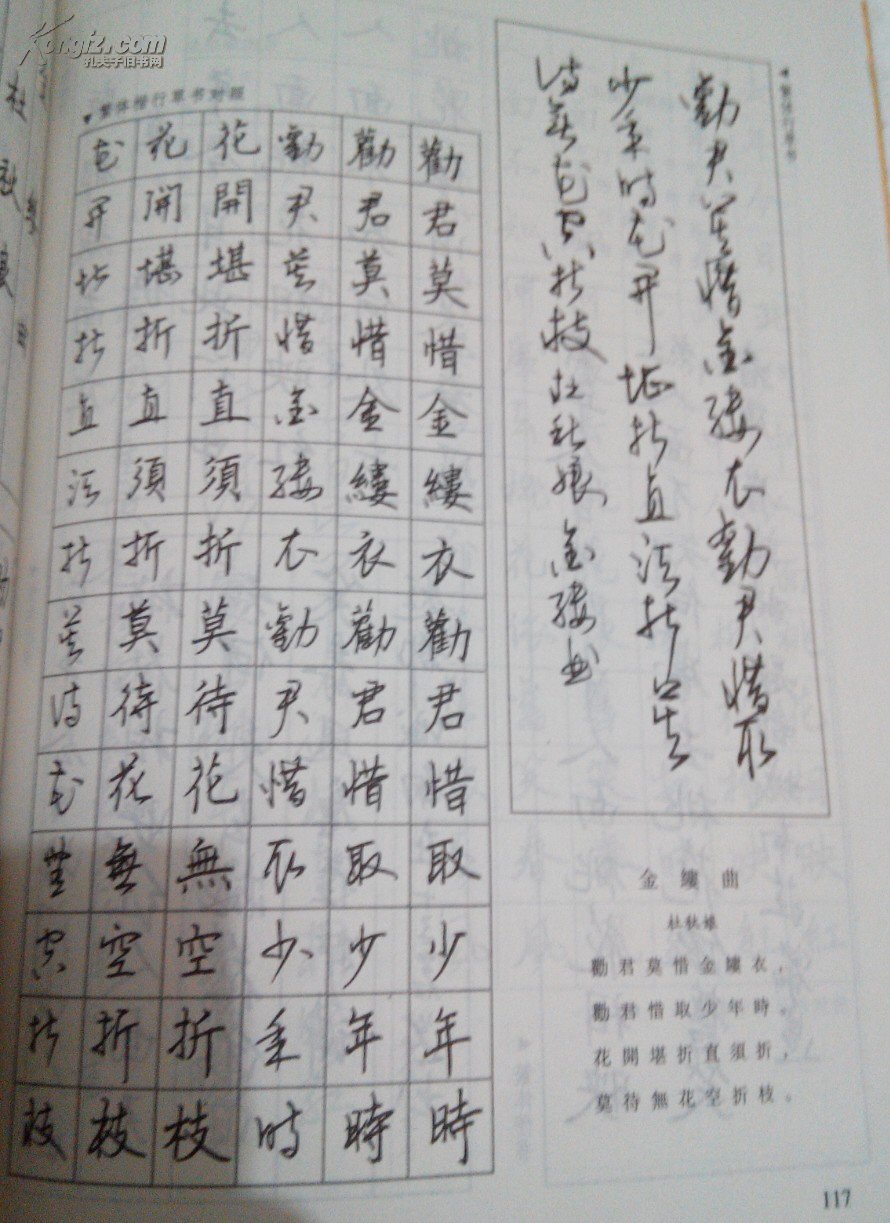 Kongfz.com
孔夫子旧书网
繁体行草书
勸君莫惜金縷衣勸君惜取
少年時花開堪折直須折莫
待無花空折枝杜秋娘金縷曲
繁体楷行草书对照
勸君莫惜金縷衣勸君惜取少年時
勸君莫惜金縷衣勸君惜取少年時
勸君莫惜金縷衣勸君惜取少年時
花開堪折直須折莫待花無空折枝
花開堪折直須折莫待花無空折枝
花開堪折直須折莫待花無空折枝
金縷曲
杜秋娘
勸君莫惜金縷衣，
勸君惜取少年時。
花開堪折直須折，
莫待無花空折枝。
117